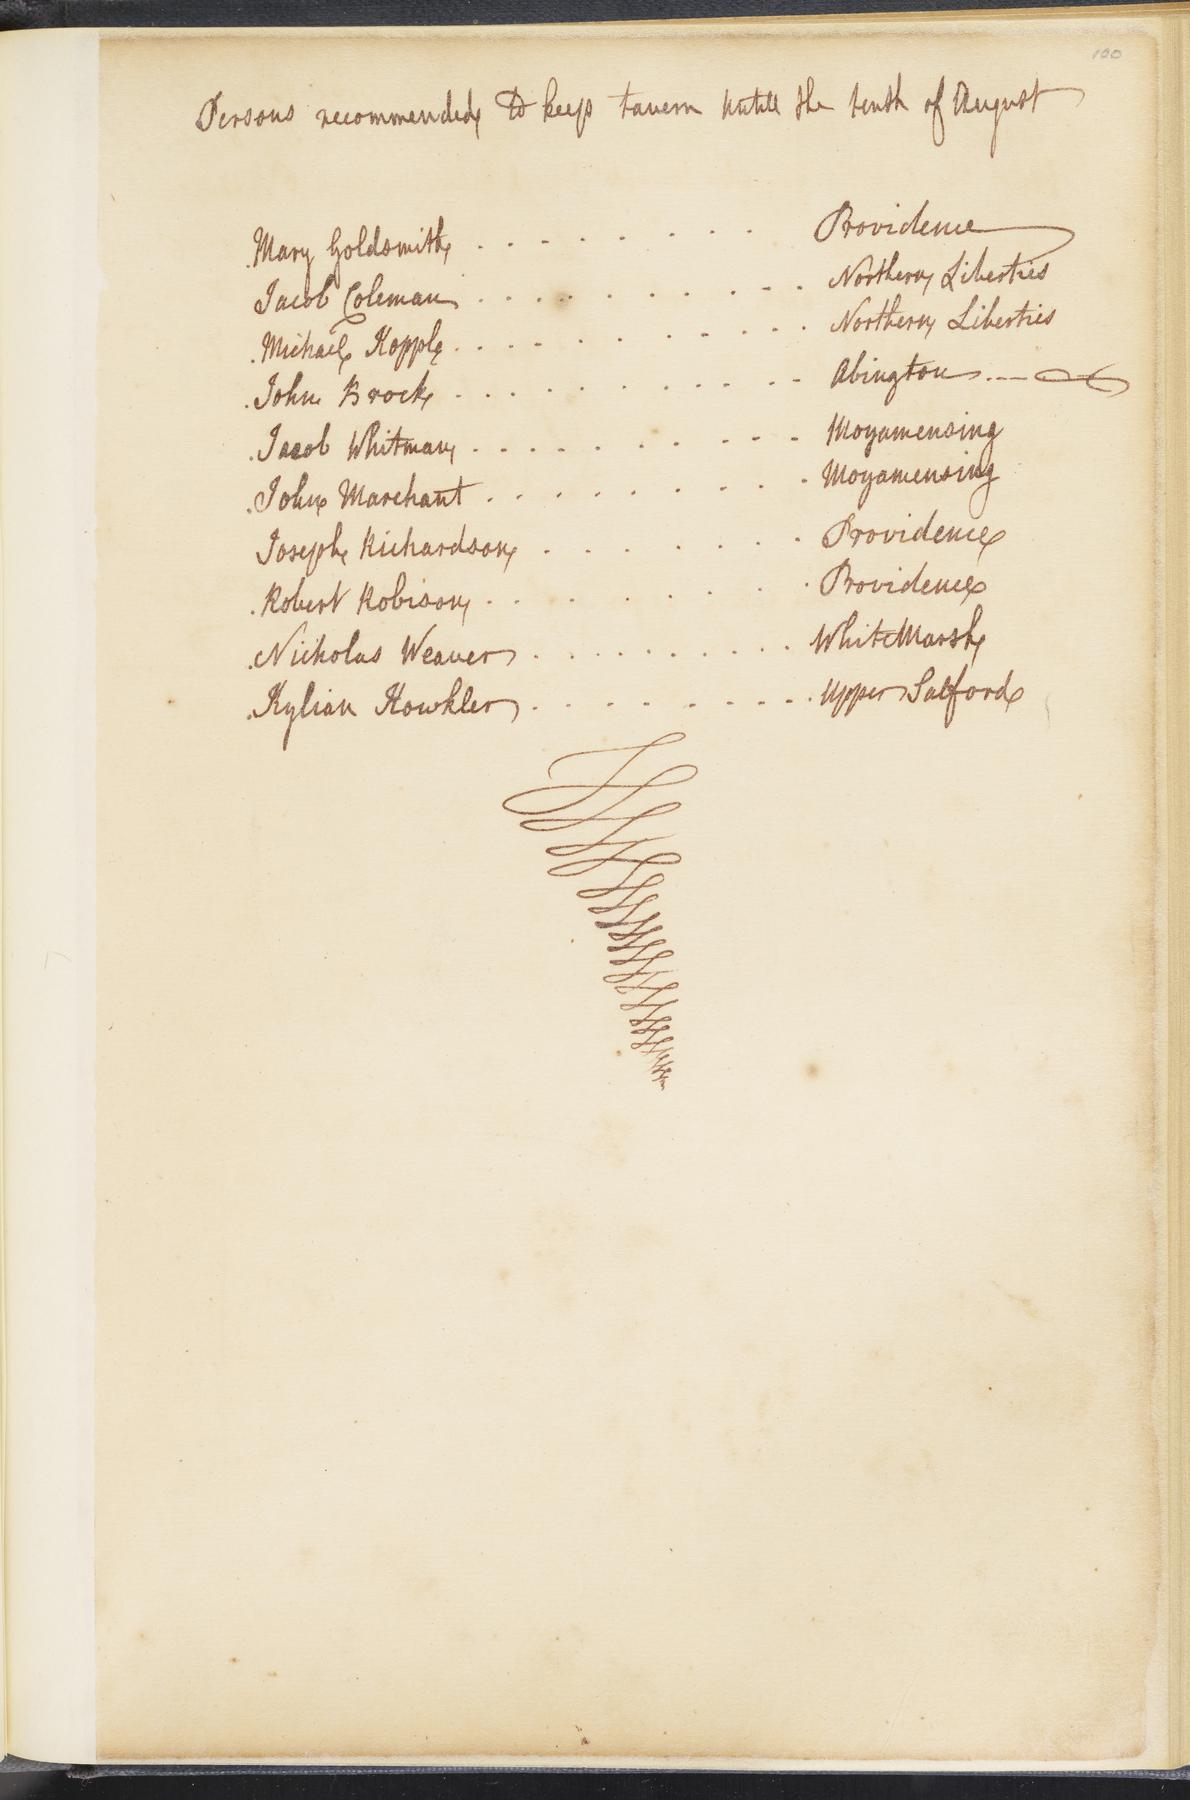 100
Persons recommended to keep tavern untill the tenth of August
Mary Goldsmith . . . . . . . . . Providence
Jacob Coleman . . . . . . . . . . . Northern Liberties
Michael Kopple . . . . . . . . . . . . Northern Liberties
John Brock . . . . . . . . . . . Abington
Jacob Whitman . . . . . . . . . . . Moyamensing
John Marchant . . . . . . . . . . Moyamensing
Joseph Richardson . . . . . . . . Providence
Robert Robison . . . . . . . . . . Providence
Nicholas Weaver . . . . . . . . . . WhiteMarsh
Kylian Kowkler . . . . . . . . . . Upper Salford